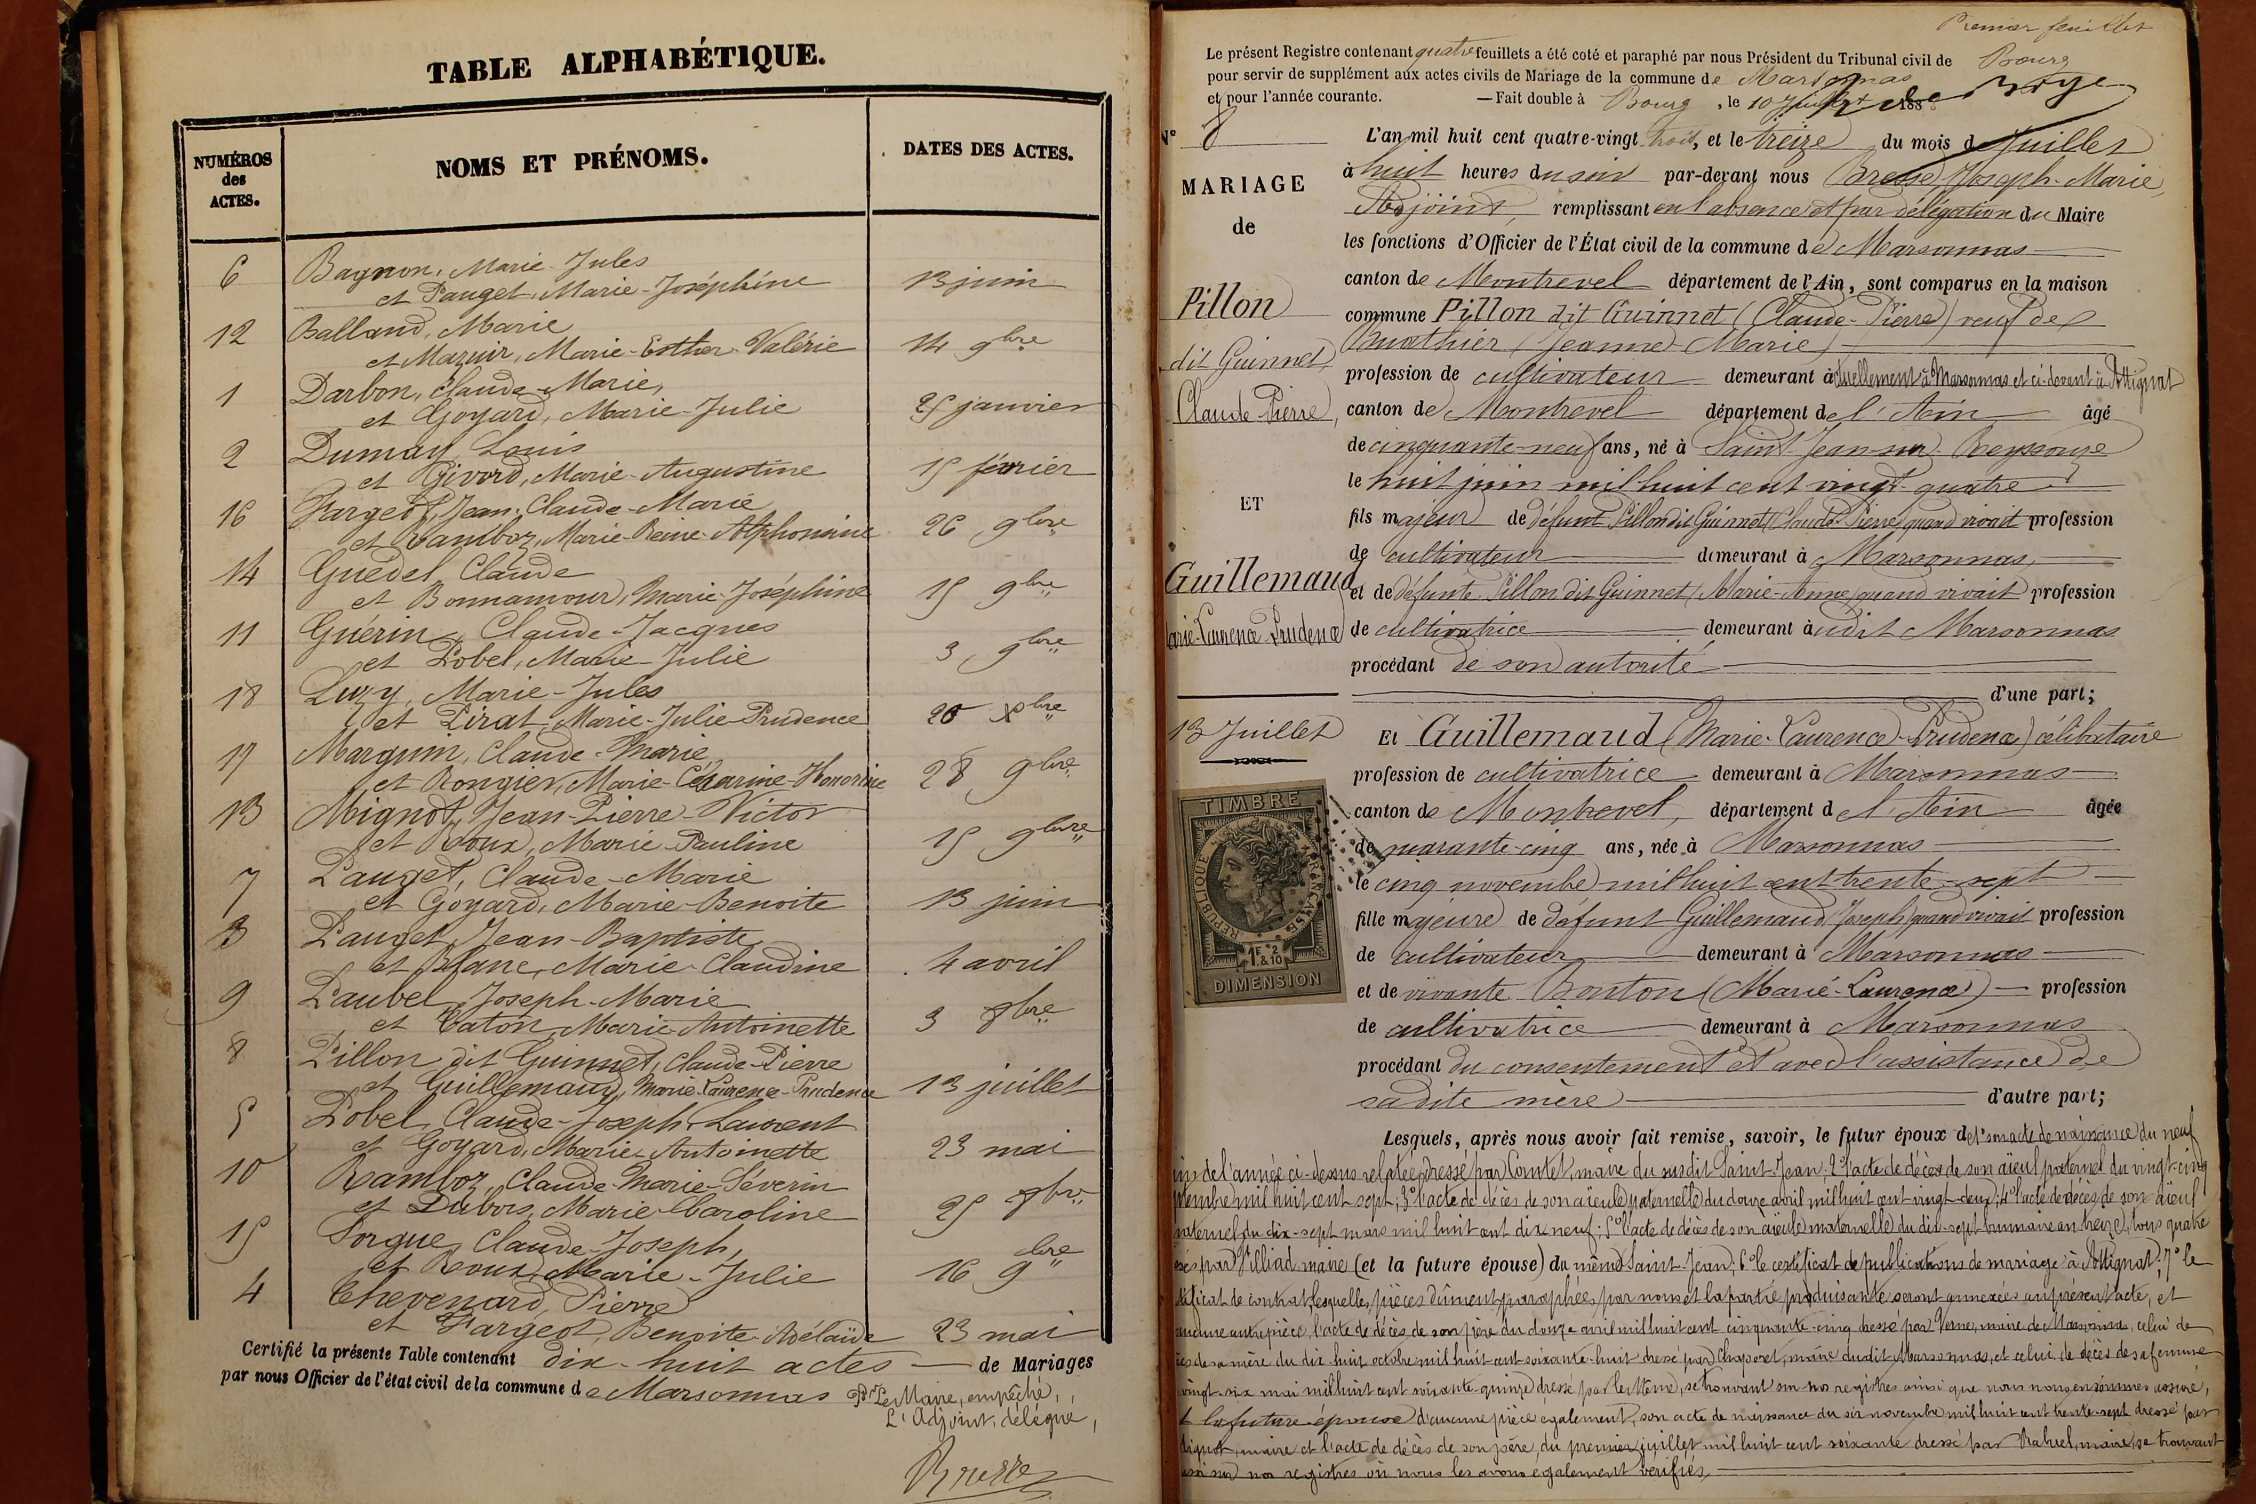 TABLE ALPHABÉTIQUE.
NUMÉROS des ACTES.
NOMS ET PRÉNOMS.
DATES DES ACTES.
6 Bagnon, Marie-Jules
et Pauget, Marie-Joséphine 13 juin
12 Balland, Marie
et Mazuir, Marie-Esther-Valérie 14 9bre
1 Darbon, Claude-Marie,
et Goyard, Marie-Julie 25 janvier
2 Dumay, Louis
et Givord, Marie-Augustine 15 février
16 Fargeot, Jean-Claude-Marie
et Ramboz, Marie-Reine-Alphonsine 26 9bre
14 Guédel, Claude
et Bonnamour, Marie-Joséphine 15 9bre
11 Guérin, Claude-Jacques
et Pobel, Marie-Julie 3 9bre
18 Luzy, Marie-Jules
et Pirat, Marie-Julie-Prudence 20 Xbre
17 Marguin, Claude-Marie,
et Rongier, Marie-Césarine-Honorine 28 9bre
13 Mignot, Jean-Pierre-Victor
et Roux, Marie-Pauline 15 9bre
7 Pauget, Claude-Marie
et Goyard, Marie-Benoite 13 juin
3 Pauget, Jean-Baptiste
et Blanc, Marie-Claudine 4 avril
9 Paubel, Joseph-Marie
et Caton, Marie-Antoinette 3 8bre
8 Pillon dit Guinnet, Claude-Pierre
et Guillemaud, Marie-Laurence-Prudence 13 juillet
5 Pobel, Claude-Joseph-Laurent
et Goyard, Marie-Antoinette 23 mai
10 Ramboz, Claude-Marie-Séverin
et Dubois, Marie-Caroline 25 8bre
15 Sorgue, Claude-Joseph,
et Roux, Marie-Julie 16 9bre
4 Thevenard, Pierre
et Fargeot, Benoite-Adélaïde 23 mai
Certifié la présente Table contenant dix-huit actes de Mariages
par nous Officier de l'état civil de la commune de Marsonnas Pr Le Maire, empêché,
L'Adjoint, délégué,
Bresse
Premier feuillet
Le présent Registre contenant quatre feuillets a été coté et paraphé par nous Président du Tribunal civil de Bourg
pour servir de supplément aux actes civils de Mariage de la commune de Marsonnas
et pour l'année courante. — Fait double à Bourg, le 10 Juillet 188
N° 8
MARIAGE
de
Pillon
dit Guinnet,
Claude-Pierre,
ET
Guillemaud
Marie-Laurence-Prudence
13 Juillet
TIMBRE
RÉPUBLIQUE FRANÇAISE
1F 2 & 10
DIMENSION
L'an mil huit cent quatre-vingt trois, et le treize du mois d Juillet
à huit heures du soir par-devant nous Bresse Joseph-Marie,
Adjoint, remplissant en l'absence et par délégation du Maire
les fonctions d'Officier de l'État civil de la commune de Marsonnas
canton de Montrevel département de l'Ain, sont comparus en la maison
commune Pillon dit Guinnet (Claude-Pierre) veuf de
Buathier (Jeanne-Marie)
profession de cultivateur demeurant actuellement à Marsonnas et ci-devant à Attignat
canton de Montrevel département de l'Ain âgé
de cinquante-neuf ans, né à Saint-Jean-sur-Reyssouze
le huit juin mil huit cent vingt-quatre
fils majeur de défunt Pillon dit Guinnet (Claude-Pierre) quand vivait profession
de cultivateur demeurant à Marsonnas,
et de défunte Pillon dit Guinnet (Marie-Anne) quand vivait profession
de cultivatrice demeurant audit Marsonnas
procédant de son autorité
d'une part;
Et Guillemaud (Marie-Laurence-Prudence) célibataire
profession de cultivatrice demeurant à Marsonnas
canton de Montrevel, département de l'Ain âgée
de quarante-cinq ans, née à Marsonnas
le cinq novembre mil huit cent trente-sept
fille majeure de défunt Guillemaud Joseph quand vivait profession
de cultivateur demeurant à Marsonnas
et de vivante Bouton (Marie-Laurence) profession
de cultivatrice demeurant à Marsonnas
procédant du consentement et avec l'assistance de
sadite mère d'autre part;
Lesquels, après nous avoir fait remise, savoir, le futur époux de 1° son acte de naissance du neuf
juin de l'année ci-dessus relatée, dressé par Comtet, maire du susdit Saint-Jean; 2° l'acte de décès de son aïeul paternel du vingt-cinq
mil huit cent sept; 3° l'acte de décès de son aïeule paternelle du douze avril mil huit cent vingt-deux; 4° l'acte de décès de son aïeul
maternel du dix-sept mars mil huit cent dix-neuf; 5° l'acte de décès de son aïeule maternelle du dix-sept brumaire an treize, tous quatre
par Villiad maire (et la future épouse) du même Saint-Jean; 6° le certificat de publications de mariage à Attignat; 7° le
certificat de contrat, lesquelles pièces dûment paraphées par nous et la partie produisante seront annexées au présent acte, et
aucune autre pièce, l'acte de décès de son père du douze avril mil huit cent cinquante-cinq dressé par Verne, maire de Marsonnas, celui de
décès de sa mère du dix-huit octobre mil huit cent soixante-huit dressé par Chaposet, maire dudit Marsonnas, et celui de décès de sa femme
vingt-six mai mil huit cent soixante-quinze dressé par le même, se trouvant sur nos registres ainsi que nous nous en sommes assuré,
et la future épouse d'aucune pièce également, son acte de naissance du six novembre mil huit cent trente-sept dressé par
maire et l'acte de décès de son père, du premier juillet mil huit cent soixante dressé par maire, se trouvant
aussi sur nos registres où nous les avons également vérifiés,